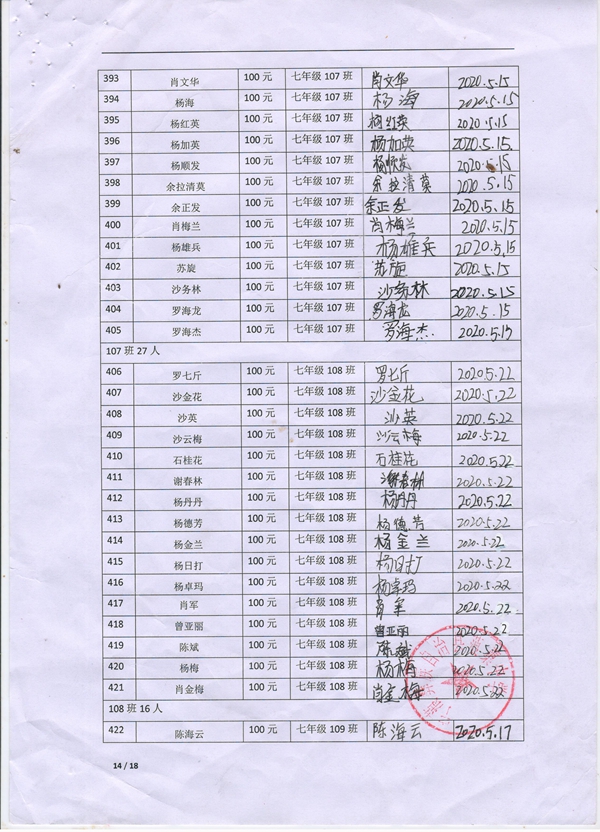 393 肖文华 100 元 七年级 107 班 肖文华 2020.5.15
394 杨海 100 元 七年级 107 班 杨海 2020.5.15
395 杨红英 100 元 七年级 107 班 杨红英 2020.5.15
396 杨加英 100 元 七年级 107 班 杨加英 2020.5.15
397 杨顺发 100 元 七年级 107 班 杨顺发 2020.5.15
398 余拉清莫 100 元 七年级 107 班 余拉清莫 2020.5.15
399 余正发 100 元 七年级 107 班 余正发 2020.5.15
400 肖梅兰 100 元 七年级 107 班 肖梅兰 2020.5.15
401 杨雄兵 100 元 七年级 107 班 杨雄兵 2020.5.15
402 苏旋 100 元 七年级 107 班 苏旋 2020.5.15
403 沙务林 100 元 七年级 107 班 沙务林 2020.5.15
404 罗海龙 100 元 七年级 107 班 罗海龙 2020.5.15
405 罗海杰 100 元 七年级 107 班 罗海杰 2020.5.15
107 班 27 人
406 罗七斤 100 元 七年级 108 班 罗七斤 2020.5.22
407 沙金花 100 元 七年级 108 班 沙金花 2020.5.22
408 沙英 100 元 七年级 108 班 沙英 2020.5.22
409 沙云梅 100 元 七年级 108 班 沙云梅 2020.5.22
410 石桂花 100 元 七年级 108 班 石桂花 2020.5.22
411 谢春林 100 元 七年级 108 班 谢春林 2020.5.22
412 杨丹丹 100 元 七年级 108 班 杨丹丹 2020.5.22
413 杨德芳 100 元 七年级 108 班 杨德芳 2020.5.22
414 杨金兰 100 元 七年级 108 班 杨金兰 2020.5.22
415 杨日打 100 元 七年级 108 班 杨日打 2020.5.22
416 杨卓玛 100 元 七年级 108 班 杨卓玛 2020.5.22
417 肖军 100 元 七年级 108 班 肖军 2020.5.22
418 曾亚丽 100 元 七年级 108 班 曾亚丽 2020.5.22
419 陈斌 100 元 七年级 108 班 陈斌 2020.5.22
420 杨梅 100 元 七年级 108 班 杨梅 2020.5.22
421 肖金梅 100 元 七年级 108 班 肖金梅 2020.5.22
108 班 16 人
422 陈海云 100 元 七年级 109 班 陈海云 2020.5.17
14 / 18